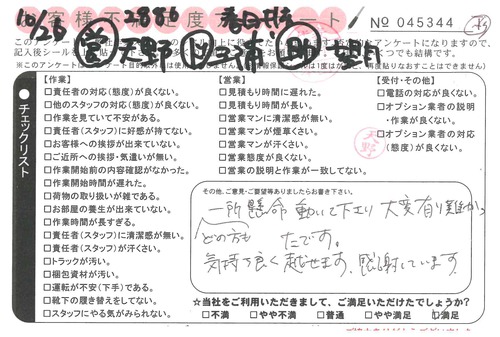 10/26 2886 春日井
客様不 度 ート
NO 045344
営 天野
このアン
記入後シールを くつも結構です。
【作業】
□責任者の対応(態度)が良くない。
□他のスタッフの対応(態度)が良くない。
□作業を見ていて不安がある。
□責任者(スタッフ)に好感が持てない。
□お客様への挨拶が出来ていない。
□ご近所への挨拶・気遣いが無い。
□作業開始前の内容確認がなかった。
□作業開始時間が遅れた。
□荷物の取り扱いが雑である。
□お部屋の養生が出来ていない。
□作業時間が長すぎる。
□責任者(スタッフ)に清潔感が無い。
□責任者(スタッフ)が汗くさい。
□トラックが汚い。
□梱包資材が汚い。
□運転が不安(下手)である。
□靴下の履き替えをしてない。
□スタッフにやる気がみられない。
【営業】
□見積もりに遅れた。
□見積もり時間が長い。
□営業マンに清潔感が無い。
□営業マンが煙草くさい。
□営業マンが汗くさい。
□営業態度が良くない。
□営業の説明と作業が一致してない。
【受付・その他】
□電話の対応が良くない。
□オプション業者の説明
・作業が良くない。
□オプション業者の対応
(態度)が良くない。
天野
チェックリスト
その他、ご意見・ご要望等ありましたらお書き下さい。
一所懸命動いて下さり大変有り難かっ
どの方も たです。
気持ち良く越せます。感謝しています。
☆当社をご利用いただきまして、ご満足いただけたでしょうか?
□不満 □やや不満 □普通 □やや満足 □満足